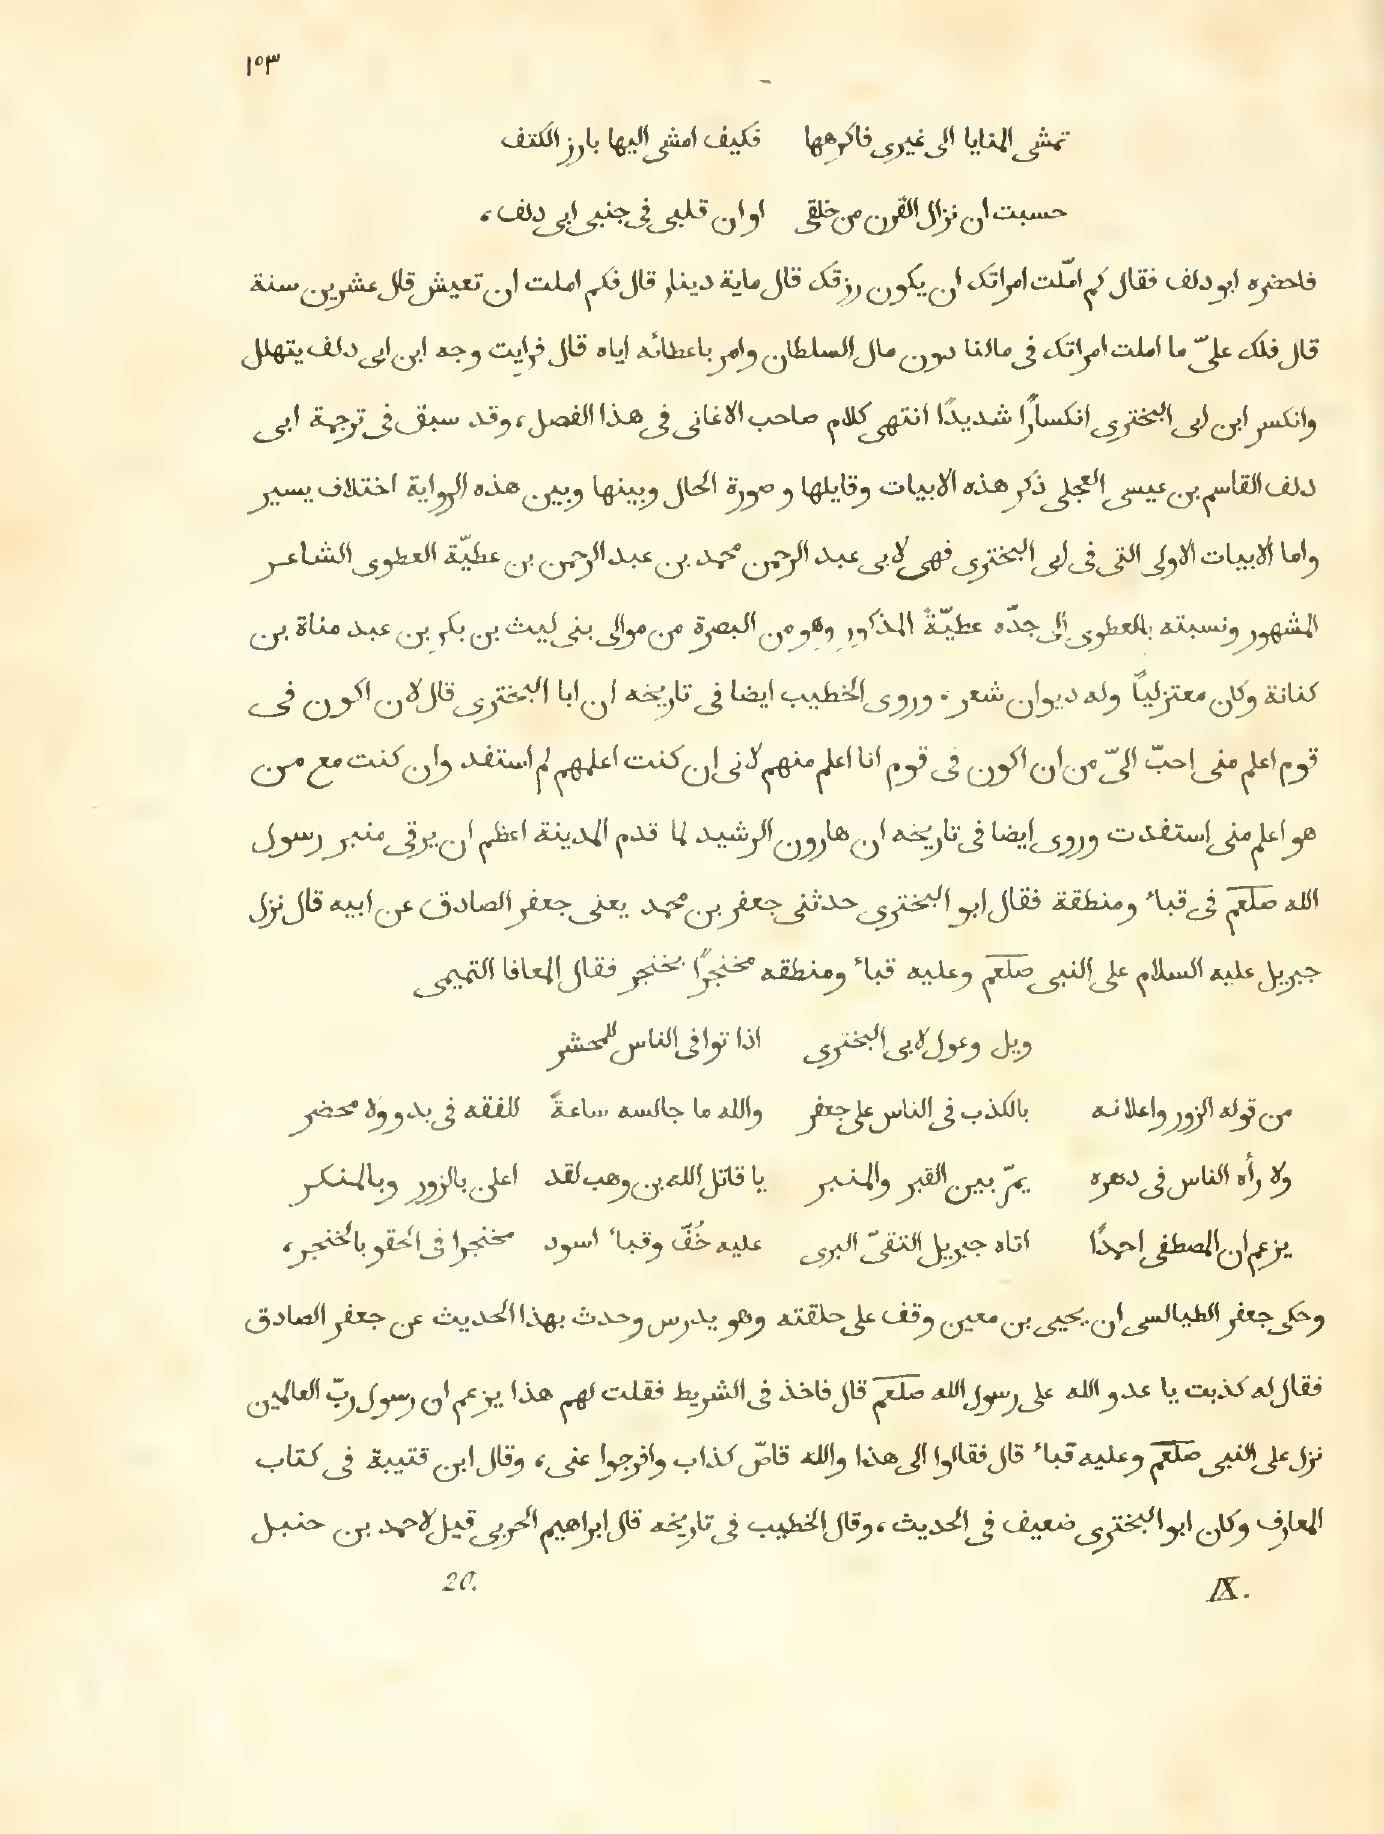 ١٥٣
تمشى المنايا الى غيرى فاكرهها فكيف امشى اليها بارز الكتف
حسبت ان نزال القرن من خلقى او ان قلبى فى جنبى ابى دلف،
فاحضره ابو دلف فقال كم امّلت امراتك ان يكون رزقك قال ماية دينار قال فكم املت ان تعيش قال عشرين سنة
قال فلك علىّ ما املت امراتك فى مالنا دون مال السلطان وامر باعطائه اياه قال فرايت وجه ابن ابى دلف يتهلل
وانكسر ابن ابى البخترى انكسارًا شديدًا انتهى كلام صاحب الاغانى فى هذا الفصل، وقد سبق فى ترجمة ابى
دلف القاسم بن عيسى العجلى ذكر هذه الابيات وقايلها وصورة الحال وبينها وبين هذه الرواية اختلاف يسير
واما الابيات الاولى التى فى ابى البخترى فهى لابى عبد الرحمن محمد بن عبد الرحمن بن عطيّة العطوى الشاعر
المشهور ونسبته بالعطوى الى جدّه عطيّة المذكور وهو من البصرة من موالى بنى ليث بن بكر بن عبد مناة بن
كنانة وكان معتزلياً وله ديوان شعر، وروى الخطيب ايضا فى تاريخه ان ابا البخترى قال لان اكون فى
قوم اعلم منى احبّ الىّ من ان اكون فى قوم انا اعلم منهم لانى ان كنت اعلمهم لم استفد وان كنت مع من
هو اعلم منى استفدت وروى ايضا فى تاريخه ان هارون الرشيد لما قدم المدينة اعظم ان يرقى منبر رسول
الله صلعم فى قباء ومنطقة فقال ابو البخترى حدثنى جعفر بن محمد يعنى جعفر الصادق عن ابيه قال نزل
جبريل عليه السلام على النبى صلعم وعليه قباء ومنطقه مخنجرًا بخنجر فقال المعافا التميمى
ويل وعول لابى البخترى اذا توافى الناس للمحشر
من قوله الزور واعلانه بالكذب فى الناس على جعفر والله ما جالسه ساعةً للفقه فى بدو ولا محضر
ولا رأه الناس فى دهره يمرّ بين القبر والمنبر يا قاتل الله بن وهب لقد اعلن بالزور وبالمنكر
يزعم ان المصطفى احمدًا اتاه جبريل التقىّ البرى عليه خُفّ وقباء اسود مخنجرا فى الحقو بالخنجر،
وحكى جعفر الطيالسى ان يحيى بن معين وقف على حلقته وهو يدرس وحدث بهذا الحديث عن جعفر الصادق
فقال له كذبت يا عدو الله على رسول الله صلعم قال فاخذ فى الشريط فقلت لهم هذا يزعم ان رسول ربّ العالمين
نزل على النبى صلعم وعليه قباء قال فقالوا الى هذا والله قاصّ كذاب وافرجوا عنى، وقال ابن قتيبة فى كتاب
المعارف وكان ابو البخترى ضعيف فى الحديث، وقال الخطيب فى تاريخه قال ابراهيم الحربى قيل لاحمد بن حنبل
IX. 20.